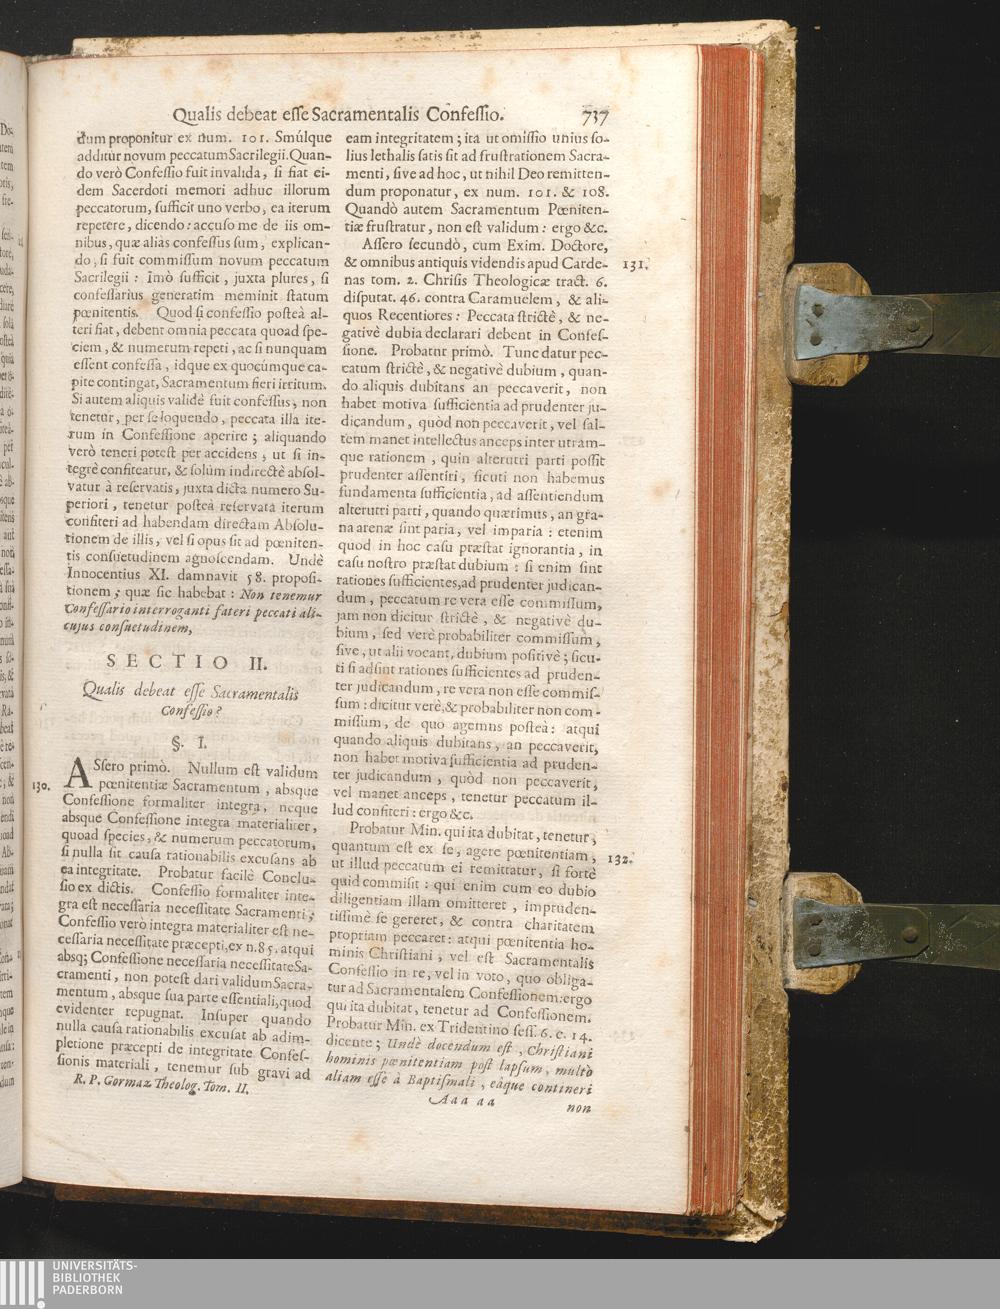 Qualis debeat esse Sacramentalis Confessio. 737
dum proponitur ex num. 101. Smúlque
additur novum peccatum Sacrilegii. Quan-
do verò Confessio fuit invalida, si fiat ei-
dem Sacerdoti memori adhuc illorum
peccatorum, sufficit uno verbo, ea iterum
repetere, dicendo: accuso me de iis om-
nibus, quæ aliàs confessus sum, explican-
do, si fuit commissum novum peccatum
Sacrilegii: Imò sufficit, juxta plures, si
confessarius generatim meminit statum
pœnitentis. Quod si confessio posteà al-
teri fiat, debent omnia peccata quoad spe-
ciem, & numerum repeti, ac si nunquam
essent confessa, idque ex quocúmque ca-
pite contingat, Sacramentum fieri irritum.
Si autem aliquis validè fuit confessus, non
tenetur, per se loquendo, peccata illa ite-
rum in Confessione aperire; aliquando
verò teneri potest per accidens, ut si in-
tegrè confiteatur, & solùm indirectè absol-
vatur à reservatis, juxta dicta numero Su-
periori, tenetur posteà reservata iterum
confiteri ad habendam directam Absolu-
tionem de illis, vel si opus sit ad pœniten-
tis consuetudinem agnoscendam. Undè
Innocentius XI. damnavit 58. proposi-
tionem; quæ sic habebat: Non tenemur
Confessario interroganti fateri peccati ali-
cujus consuetudinem,
SECTIO II.
Qualis debeat esse Sacramentalis
Confessio?
§. I.
130. ASsero primò. Nullum est validum
pœnitentiæ Sacramentum, absque
Confessione formaliter integra, neque
absque Confessione integra materialiter,
quoad species, & numerum peccatorum,
si nulla sit causa rationabilis excusans ab
ea integritate. Probatur facilè Conclu-
sio ex dictis. Confessio formaliter inte-
gra est necessaria necessitate Sacramenti;
Confessio verò integra materialiter est ne-
cessaria necessitate præcepti, ex n. 85. atqui
absq; Confessione necessaria necessitate Sa-
cramenti, non potest dari validum Sacra-
mentum, absque sua parte essentiali, quod
evidenter repugnat. Insuper quando
nulla causa rationabilis excusat ab adim-
pletione præcepti de integritate Confes-
sionis materiali, tenemur sub gravi ad
R. P. Gormaz Theolog. Tom. II.
eam integritatem; ita ut omissio unius so-
lius lethalis satis sit ad frustrationem Sacra-
menti, sive ad hoc, ut nihil Deo remitten-
dum proponatur, ex num. 101. & 108.
Quandò autem Sacramentum Pœniten-
tiæ frustratur, non est validum: ergo &c.
Assero secundò, cum Exim. Doctore,
& omnibus antiquis videndis apud Carde- 131.
nas tom. 2. Chrisis Theologicæ tract. 6.
disputat. 46. contra Caramuelem, & ali-
quos Recentiores: Peccata strictè, & ne-
gativè dubia declarari debent in Confes-
sione. Probatur primò. Tunc datur pec-
catum strictè, & negativè dubium, quan-
do aliquis dubitans an peccaverit, non
habet motiva sufficientia ad prudenter ju-
dicandum, quòd non peccaverit, vel sal-
tem manet intellectus anceps inter utram-
que rationem, quin alterutri parti possit
prudenter assentiri, sicuti non habemus
fundamenta sufficientia, ad assentiendum
alterutri parti, quando quærimus, an gra-
na arenæ sint paria, vel imparia: etenim
quod in hoc casu præstat ignorantia, in
casu nostro præstat dubium: si enim sint
rationes sufficientes, ad prudenter judican-
dum, peccatum re vera esse commissum,
jam non dicitur strictè, & negativè du-
bium, sed verè probabiliter commissum,
sive, ut alii vocant, dubium positivè; sicu-
ti si adsint rationes sufficientes ad pruden-
ter judicandum, re vera non esse commis-
sum: dicitur verè, & probabiliter non com-
missum, de quo agemus posteà: atqui
quando aliquis dubitans, an peccaverit,
non habet motiva sufficientia ad pruden-
ter judicandum, quòd non peccaverit,
vel manet anceps, tenetur peccatum il-
lud confiteri: ergo &c.
Probatur Min. qui ita dubitat, tenetur,
quantum est ex se, agere pœnitentiam, 132.
ut illud peccatum ei remittatur, si fortè
quid commisit: qui enim cum eo dubio
diligentiam illam omitteret, impruden-
tissimè se gereret, & contra charitatem
propriam peccaret: atqui pœnitentia ho-
minis Christiani, vel est Sacramentalis
Confessio in re, vel in voto, quo obliga-
tur ad Sacramentalem Confessionem: ergo
qui ita dubitat, tenetur ad Confessionem.
Probatur Min. ex Tridentino sess. 6. c. 14.
dicente; Undè docendum est, Christiani
hominis pœnitentiam post lapsum, multò
aliam esse à Baptismali, eáque contineri
Aaa aa non
UNIVERSITÄTS-
BIBLIOTHEK
PADERBORN